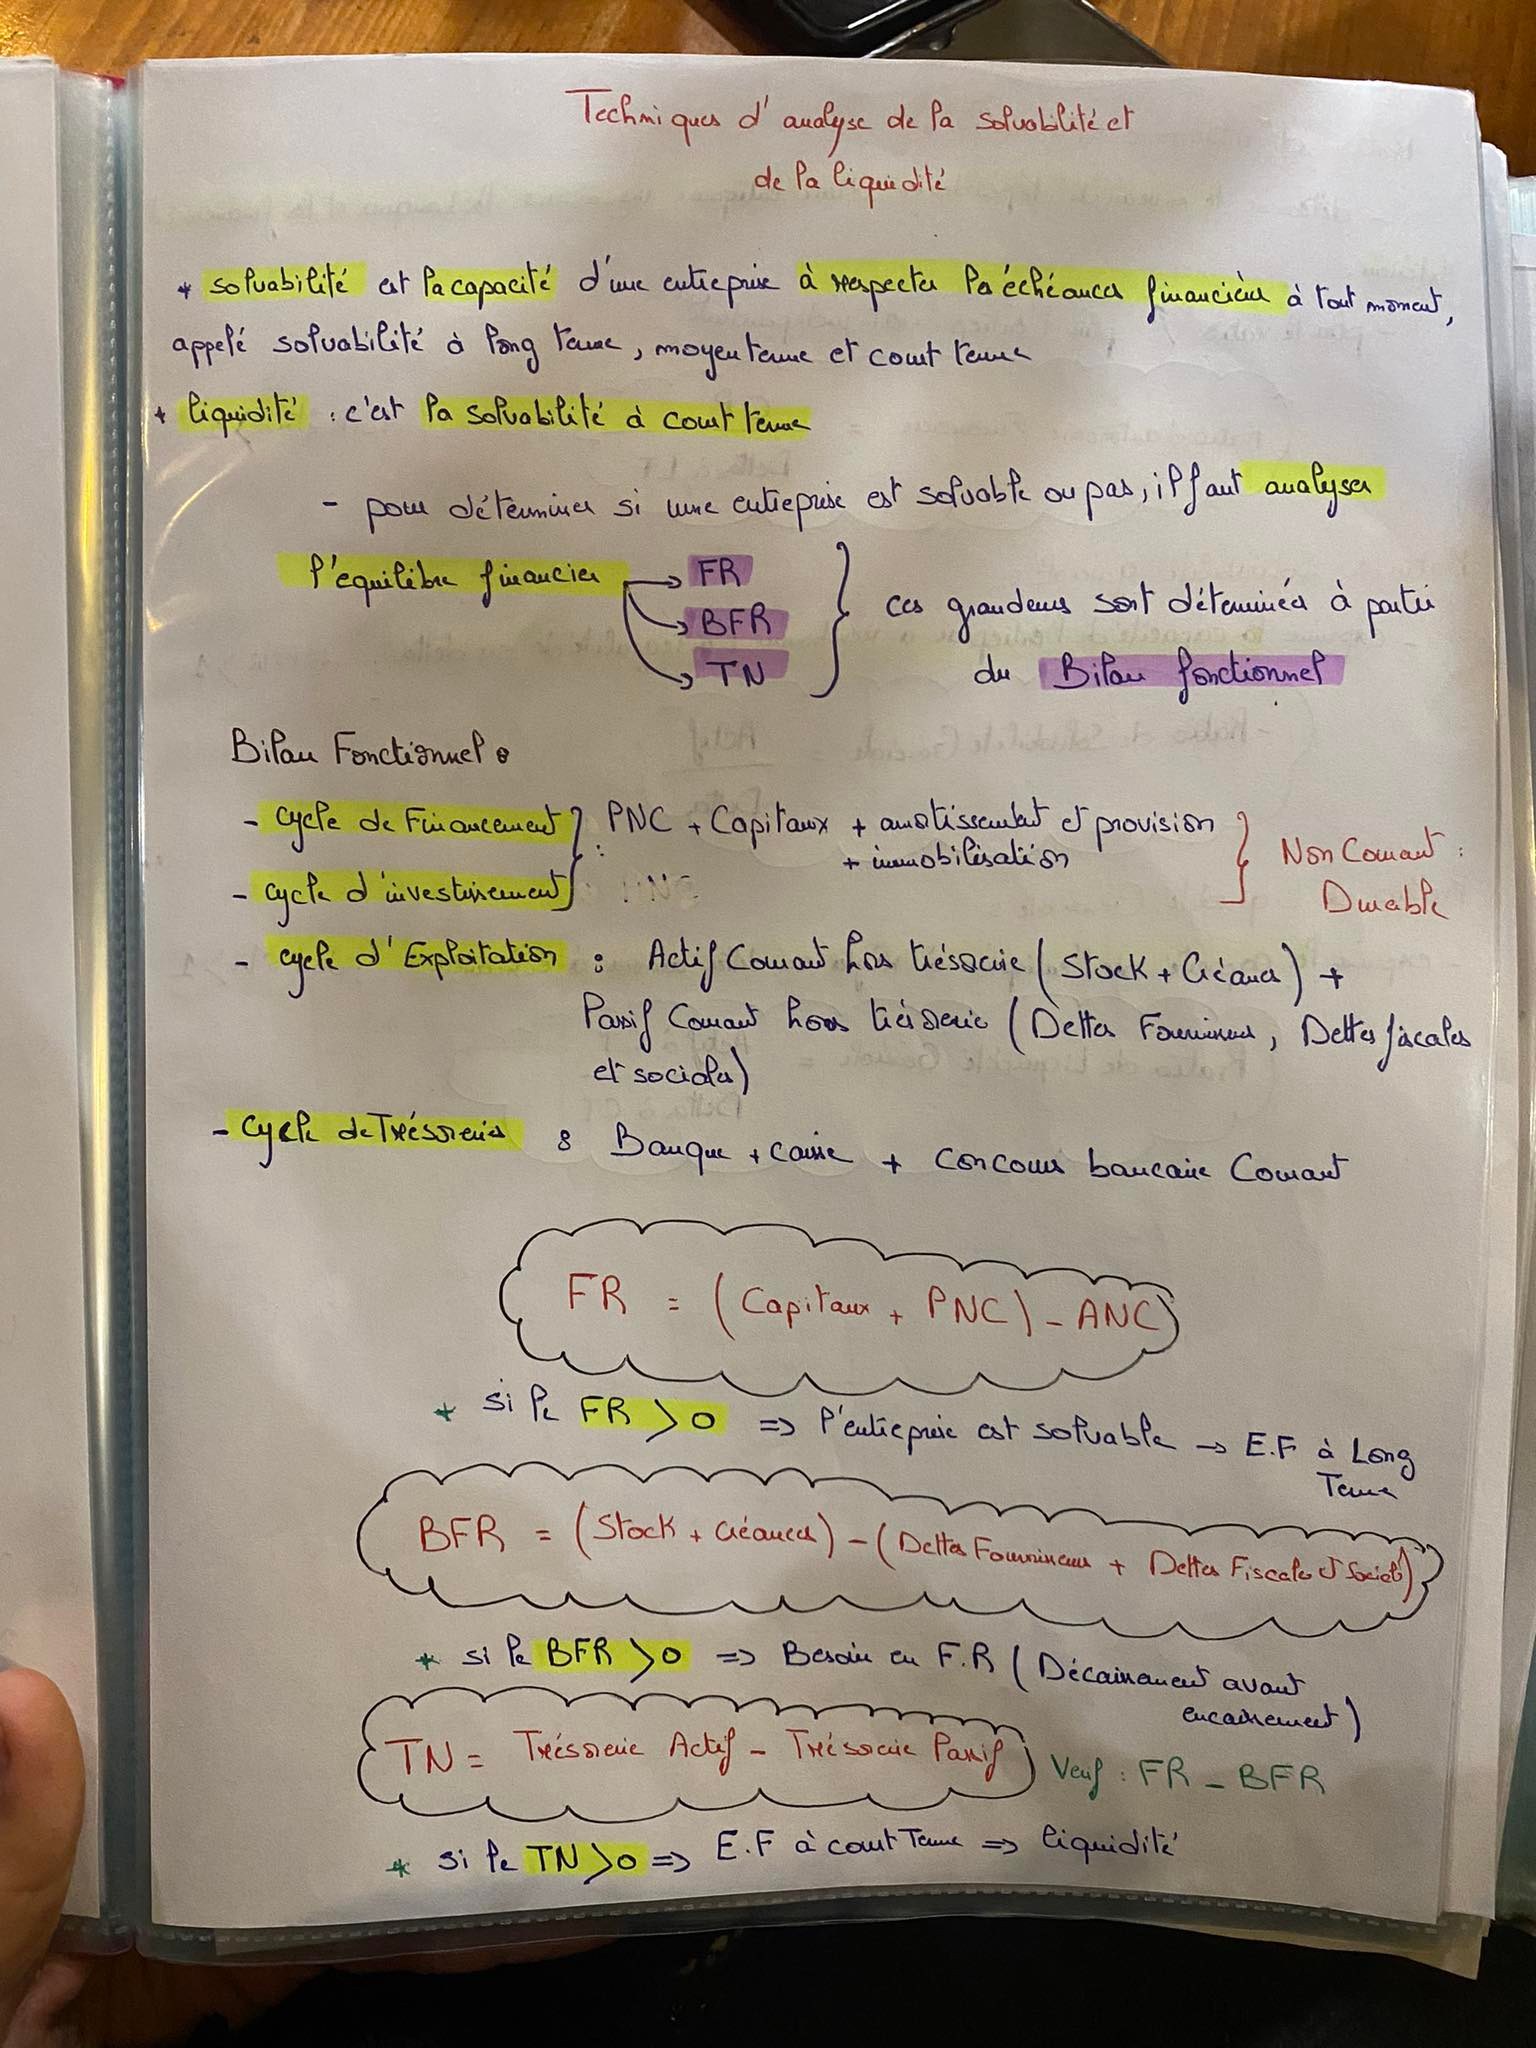 Techniques d'analyse de la solvabilité et
de la liquidité
* solvabilité est la capacité d'une entreprise à respecter les échéances financières à tout moment,
appelé solvabilité à long terme, moyen terme et court terme
* liquidité : c'est la solvabilité à court terme
- pour déterminer si une entreprise est solvable ou pas, il faut analyser
l'equilibre financier → FR
→ BFR
→ TN
ces grandeurs sont déterminées à partir
du Bilan fonctionnel
Bilan Fonctionnel :
- cycle de Financement : PNC + Capitaux + amortissement et provision
+ immobilisation
Non Courant :
- cycle d'investissement
Durable
- cycle d'Exploitation : Actif Courant hors trésorerie (Stock + Créances) +
Passif Courant hors trésorerie (Dettes Fournisseurs, Dettes fiscales
et sociales)
- cycle de Trésorerie : Banque + caisse + concours bancaire Courant
FR = (Capitaux + PNC) - ANC
* si le FR > 0 => l'entreprise est solvable → E.F à Long
Terme
BFR = (Stock + Créances) - (Dettes Fournisseurs + Dettes Fiscales et Social)
* si le BFR > 0 => Besoin en F.R (Décaissement avant
encaissement)
TN = Trésorerie Actif - Trésorerie Passif Verif : FR - BFR
* si le TN > 0 => E.F à court Terme => liquidité